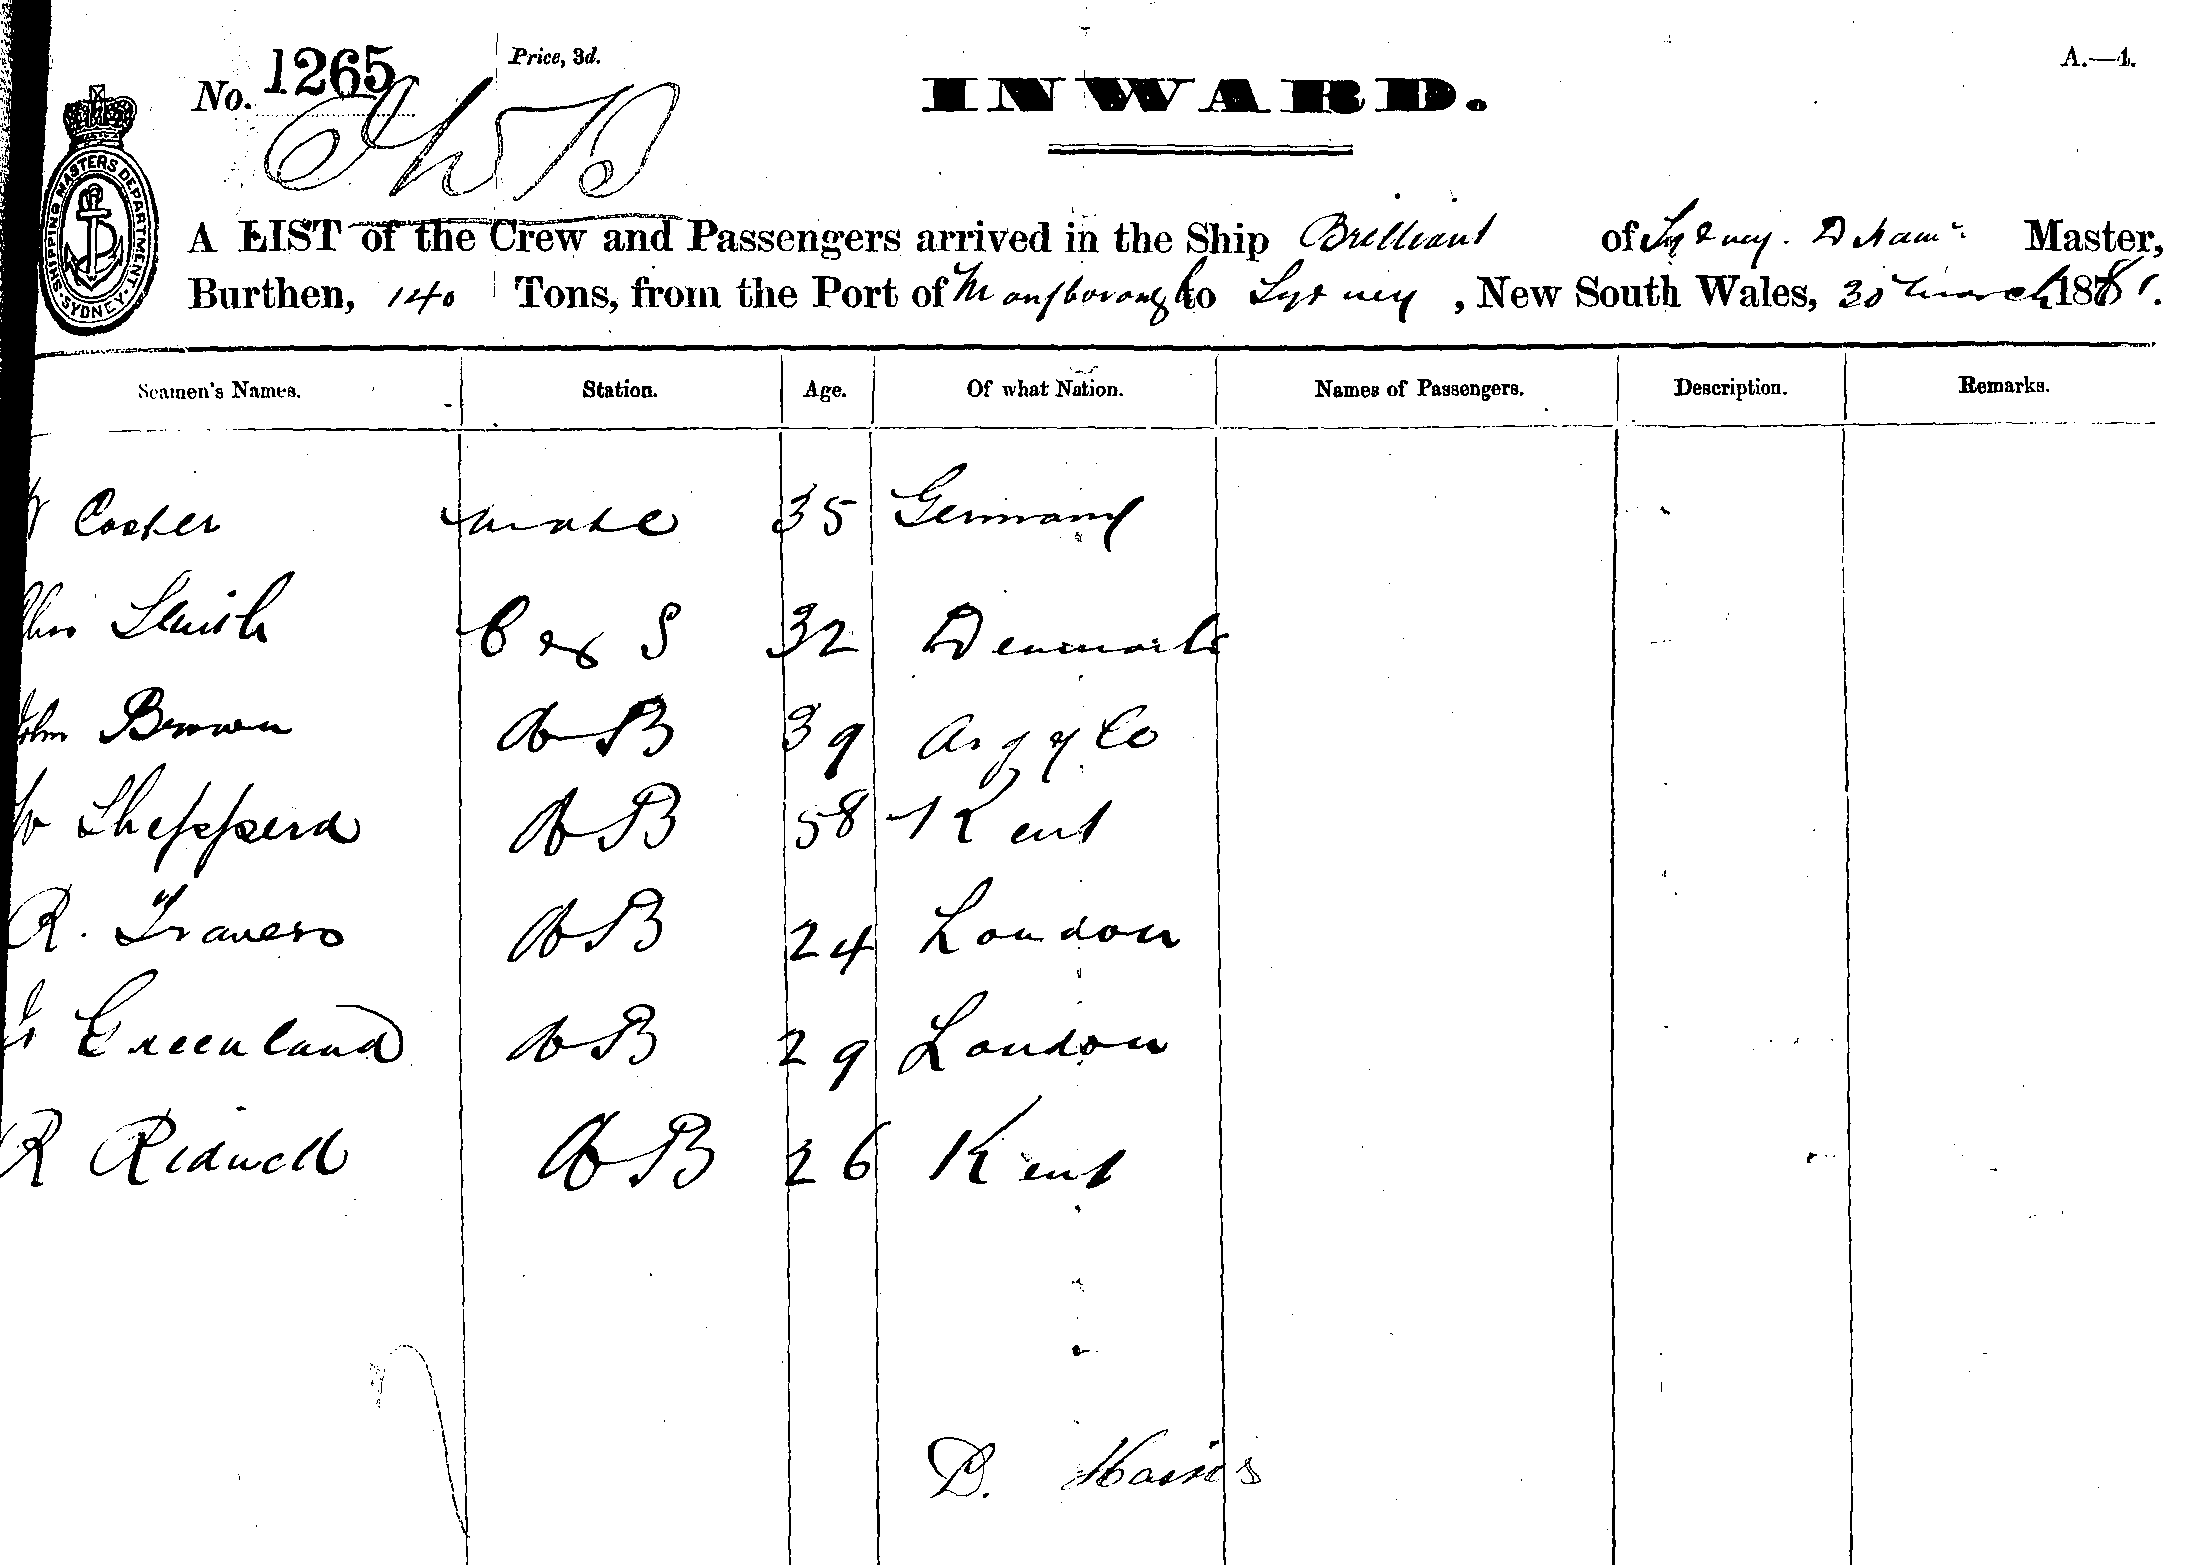 No. 1265 Price, 3d. A.—4.
INWARD.
SHIPPING MASTERS DEPARTMENT SYDNEY
A LIST of the Crew and Passengers arrived in the Ship Brilliant of Sydney. Master,
Burthen, 140 Tons, from the Port of to Sydney, New South Wales, 30 March 1881.
Seamen's Names. Station. Age. Of what Nation. Names of Passengers. Description. Remarks.
mate 35 Germany
C & S 32 Denmark
John Brown AB 39 Argyle
Shepperd AB 58 Kent
R. Travers AB 24 London
Greenland AB 29 London
R AB 26 Kent
D.